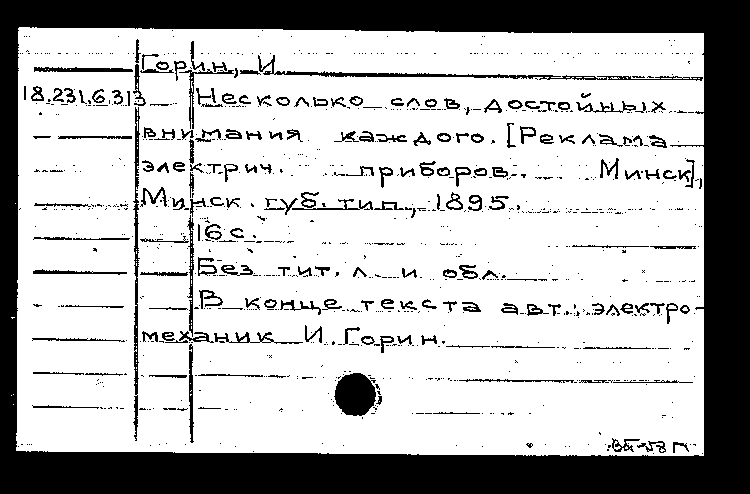 Горин, И.
18.231.6.313 Несколько слов, достойных
внимания каждого. [Реклама
электрич. приборов. Минск],
Минск. губ. тип., 1895.
16 с.
Без тит. л. и обл.
В конце текста авт.: электро-
механик И. Горин.